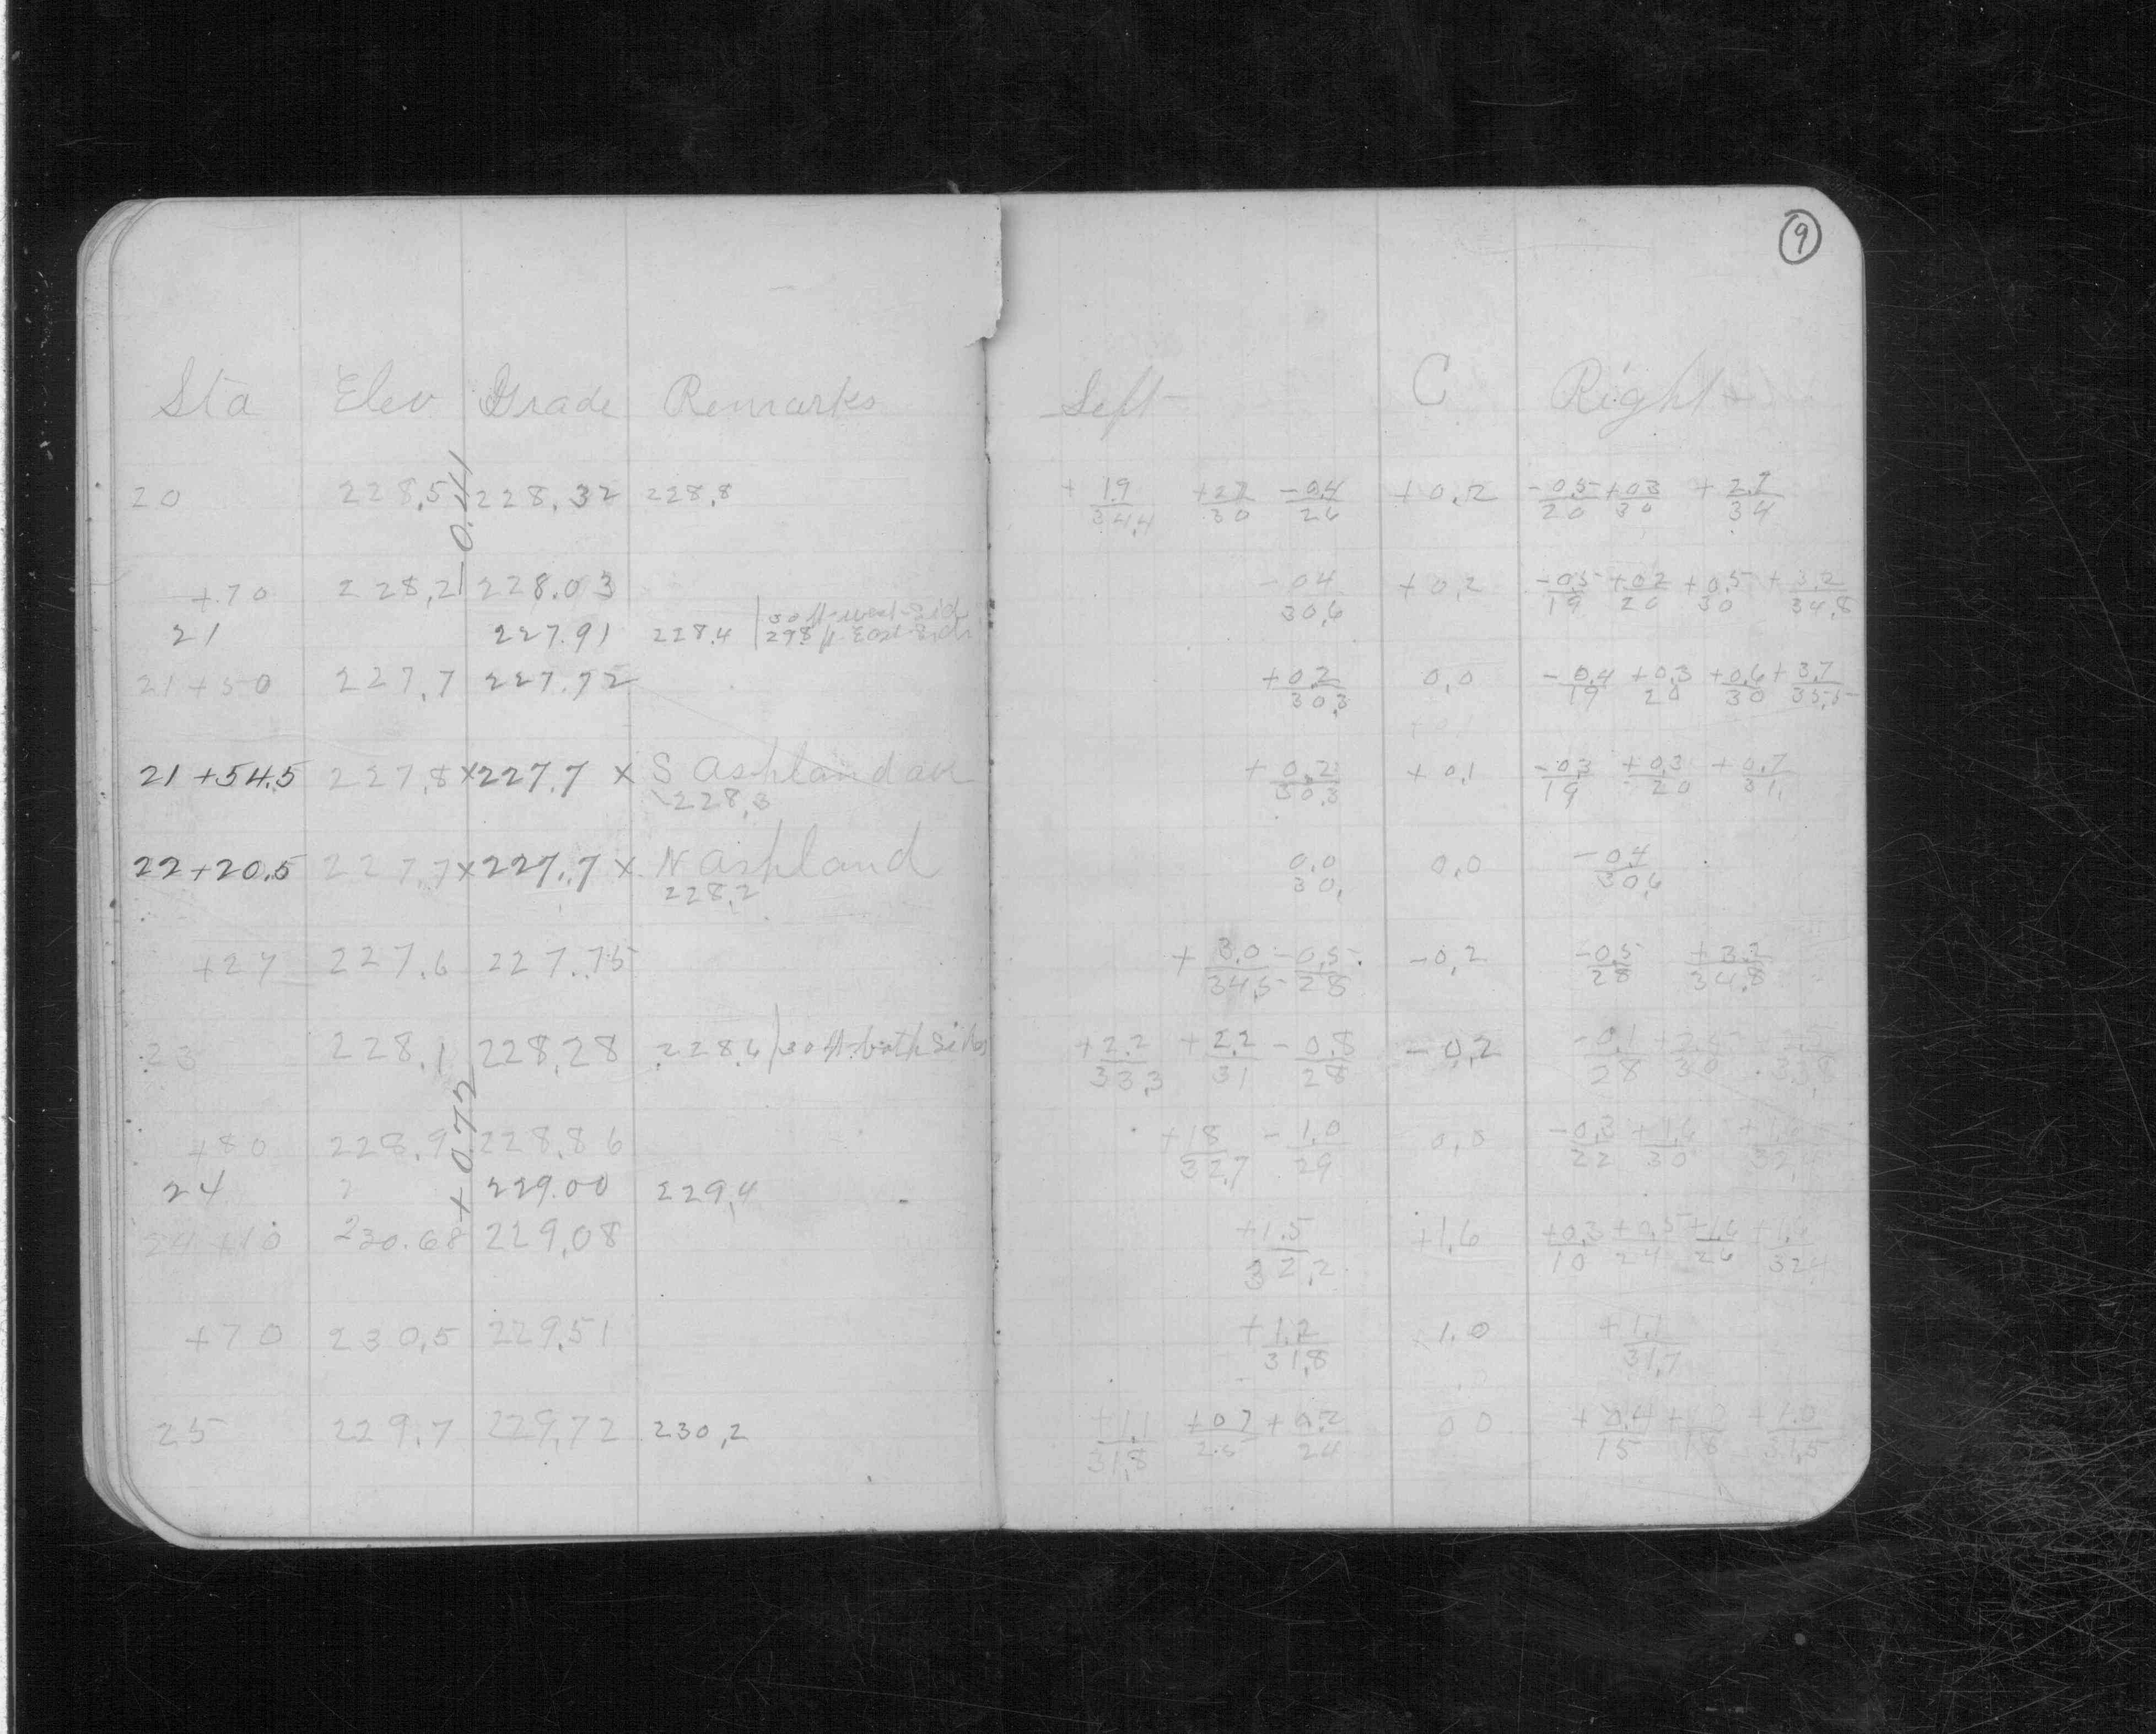 9
Sta Elev Grade Remarks Left C Right
20 228.5 228.32 228.8 +1.9/34.4 +2.2/30 -0.4/26 +0.2 -0.5/20 +0.3/30 +2.7/34
-0.41
+70 228.2 228.03 -0.4/30.6 +0.2 -0.5/19 +0.2/20 +0.5/30 +3.2/34.8
30 ft west side
21 227.91 228.4 29.8 ft East side
21+50 227.7 227.72 +0.2/30.3 0.0 -0.4/19 +0.3/20 +0.6/30 +3.7/35.5
21+54.5 227.8 x 227.7 x S Ashland ave +0.2/30.3 +0.1 -0.3/19 +0.3/20 +0.7/31.
228.3
22+20.5 227.7 x 227.7 x N Ashland 0.0/30. 0.0 -0.4/30.6
228.2
+27 227.6 227.75 +3.0/34.5 -0.5/28 -0.2 -0.5/28 +3.2/34.8
23 228.1 228.28 228.6 30 ft both sides +2.2/33.3 +2.2/31 -0.8/28 -0.2 -0.1/28
+0.72
+80 228.9 228.86 +1.8/32.7 -1.0/29 0.0 -0.3/22 +1.6/30
24 229.00 229.4
24+10 230.68 229.08 +1.5/32.2 +1.6 +0.3/10 +0.5/24 +1.6/26 +1.6/32.4
+70 230.5 229.51 +1.2/31.8 +1.0 +1.1/31.7
25 229.7 229.72 230.2 +1.1/31.8 +0.7/25 +0.2/24 0 0 +0.4/15 +1.0/31.5